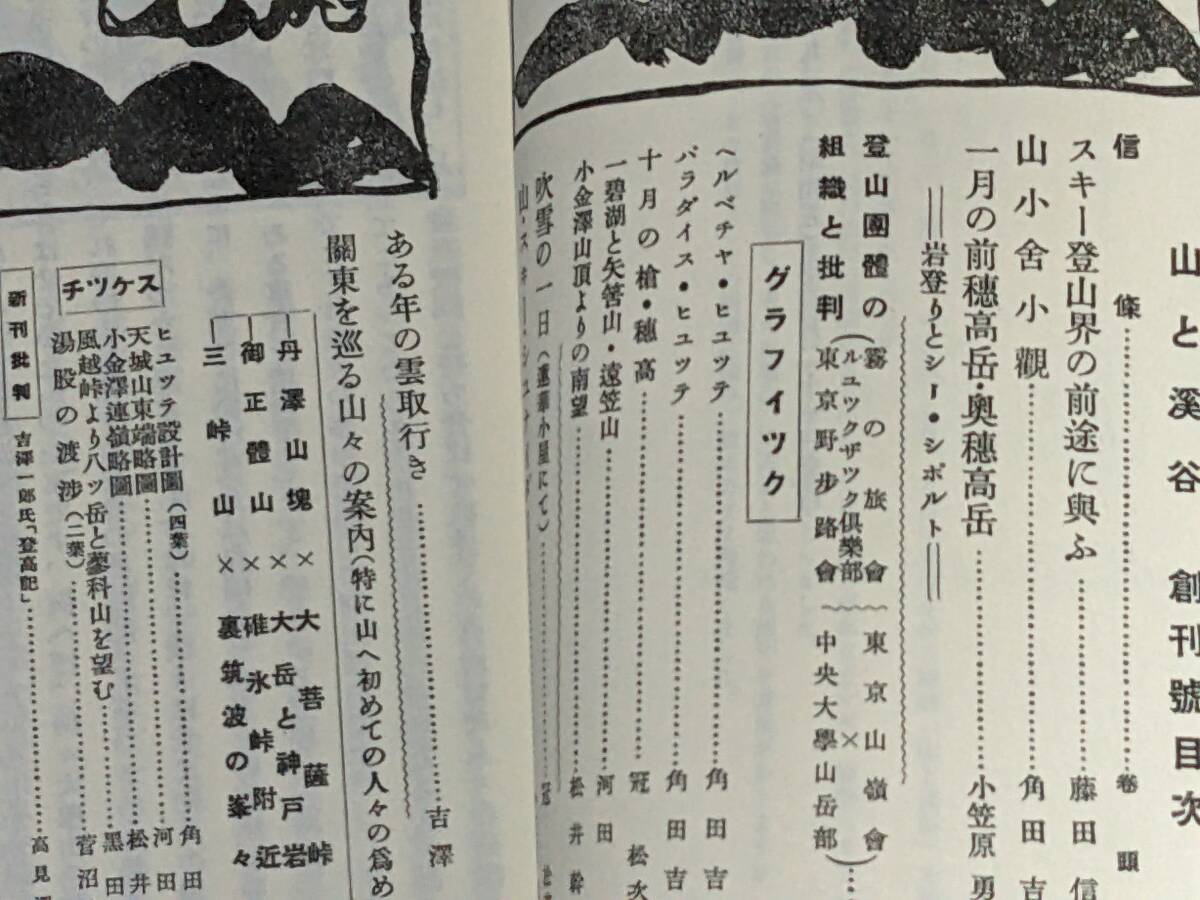 山と溪谷 創刊號目次
信條……………………卷頭
スキー登山界の前途に與ふ…………藤田信
山小舍小觀……………………角田吉
一月の前穗高岳・奧穗高岳…………小笠原勇
＝岩登りとシー・シポルト＝
登山團體の
組織と批判
(霧の旅會～東京山嶺會
ルュックザック俱樂部×
東京野步路會～中央大學山岳部)…
グラフイツク
ヘルベチヤ・ヒユツテ……………………角田吉
パラダイス・ヒユツテ……………………角田吉
十月の槍・穗高……………………冠松次
一碧湖と矢筈山・遠笠山……………………河田
小金澤山頂よりの南望……………………松井幹
吹雪の一日(蓮華小屋にて)……………………冠松
ある年の雲取行き……………………吉澤
關東を巡る山々の案內(特に山へ初めての人々の爲め
丹澤山塊×大菩薩峠
御正體山×大岳と神戶岩
三峠山×碓氷峠附近
×裏筑波の峯々
スケツチ
ヒユツテ設計圖(四葉)……………………角田
天城山東端略圖……………………河田
小金澤連嶺略圖……………………松井
風越峠より八ツ岳と蓼科山を望む……………………黑田
湯股の渡涉(二葉)……………………菅沼
新刊批判
吉澤一郎氏「登高記」……………………高見